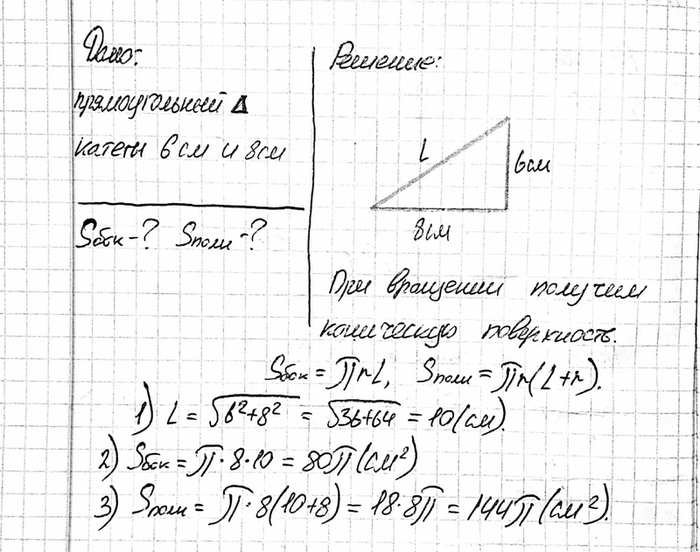 Дано:
прямоугольный Δ
катеты 6см и 8см
Sбок-? Sполн-?
Решение:
L
6см
8см
При вращении получим
коническую поверхность.
Sбок = πrL, Sполн = πr(L+r).
1) L = √6²+8² = √36+64 = 10(см).
2) Sбок = π·8·10 = 80π(см²)
3) Sполн = π·8(10+8) = 18·8π = 144π(см²).